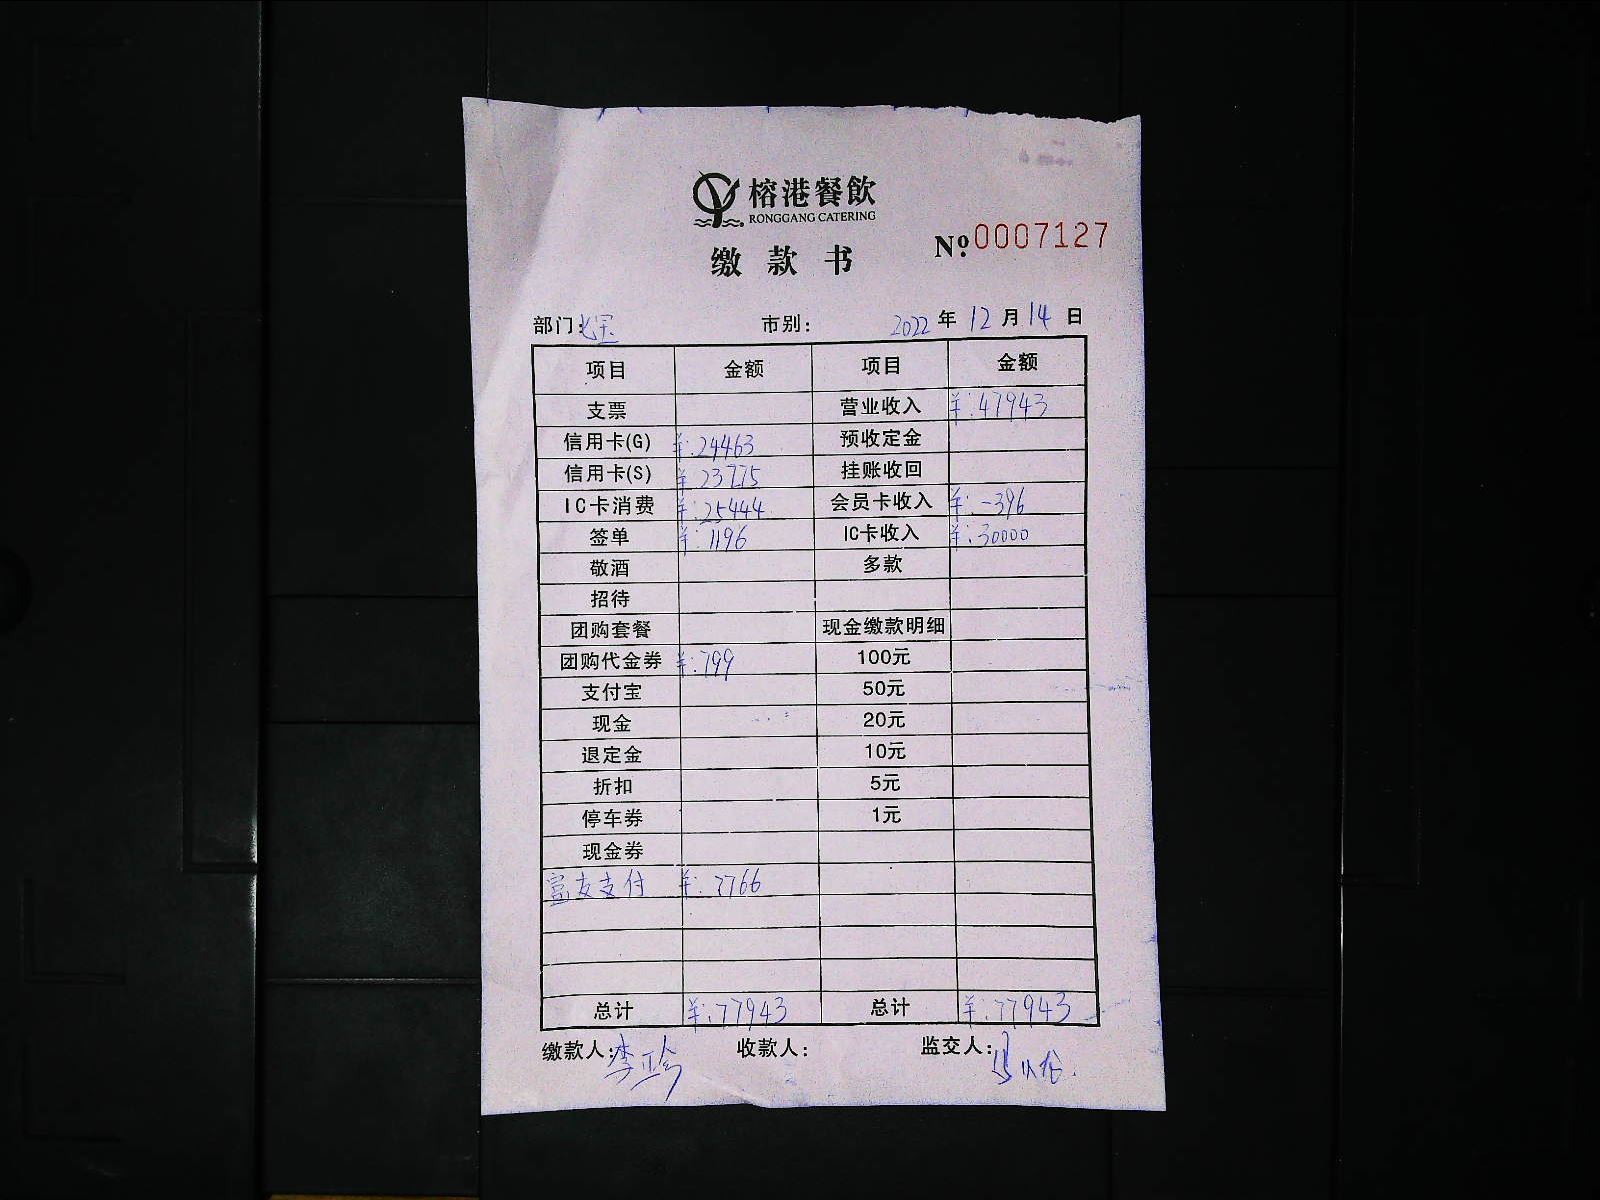 榕港餐飲
RONGGANG CATERING
缴款书
№ 0007127
部门：七宝 市别： 2022 年 12 月 14 日
项目 金额 项目 金额
支票 营业收入 ¥：47943
信用卡(G) ¥：24463 预收定金
信用卡(S) ¥ 23775 挂账收回
IC卡消费 ¥：25444 会员卡收入 ¥：-396
签单 ¥：1196 IC卡收入 ¥：30000
敬酒 多款
招待
团购套餐 现金缴款明细
团购代金券 ¥：799 100元
支付宝 50元
现金 20元
退定金 10元
折扣 5元
停车券 1元
现金券
富友支付 ¥：7766
总计 ¥：77943 总计 ¥：77943
缴款人： 收款人： 监交人：